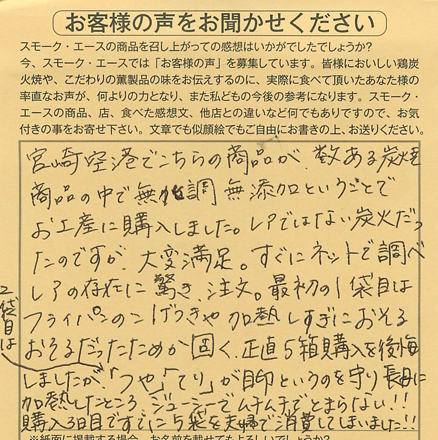 お客様の声をお聞かせください
スモーク・エースの商品を召し上がっての感想はいかがでしたでしょうか?
今、スモーク・エースでは「お客様の声」を募集しています。皆様においしい鶏炭
火焼や、こだわりの薫製品の味をお伝えするのに、実際に食べて頂いたあなた様の
率直なお声が、何よりの力となり、また私どもの今後の参考になります。スモーク・
エースの商品、店、食べた感想文、他店との違いなど何でもありですので、お気
付きの事をお寄せ下さい。文章でも似顔絵でもご自由にお書きの上、お送りください。
宮崎空港でこちらの商品が、数ある炭焼
商品の中で無化調 無添加ということで
お土産に購入しました。レアではない炭火だっ
たのですが、大変満足。すぐにネットで調べ
レアの存在に驚き、注文。最初の1袋目は
フライパンの こげつきや 加熱しすぎにおそる
おそるだったためか 固く、正直5箱購入を後悔
2袋目は
しましたが、「つや」「てり」が目印というのを守り 長目に
加熱したところ、ジューシームチムチでとまらない!!
購入3日目ですでに5袋を夫婦で消費してしまいました!!
※紙面に掲載する場合、お名前を載せてもよろしいでしょうか?